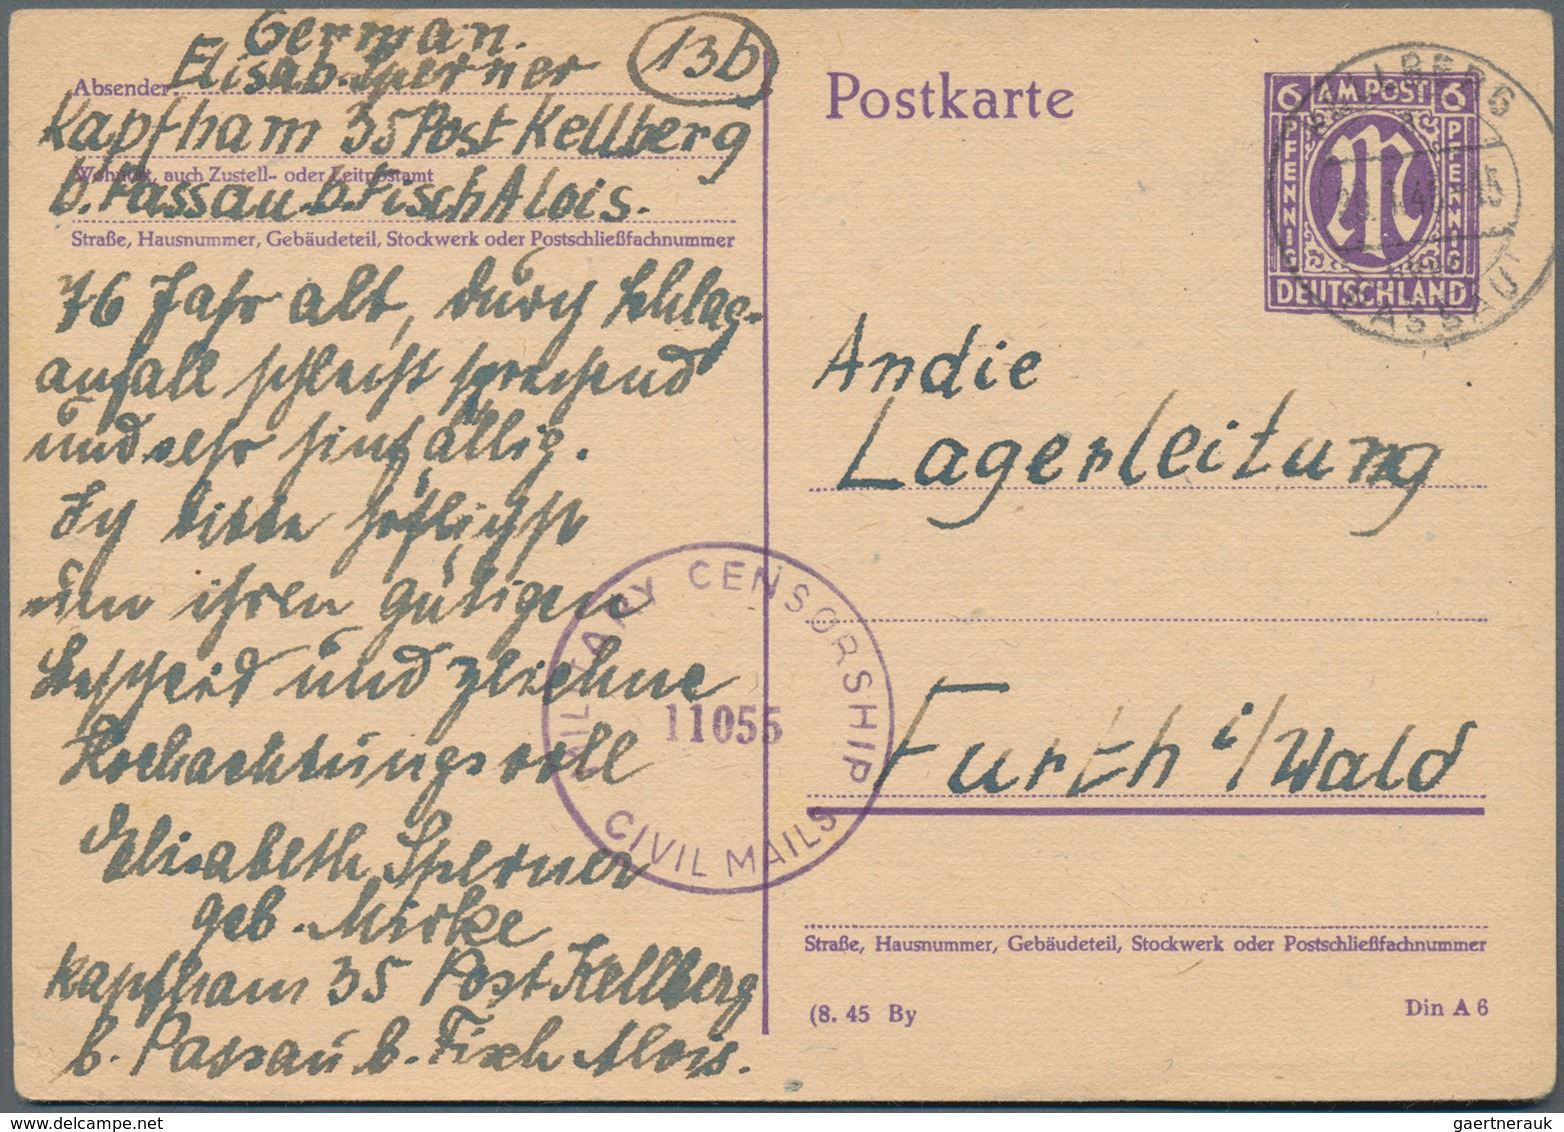 German.
Elisab. Sperner
13b
Absender:
Kapfham 35 Post Kellberg
Wohnort, auch Zustell- oder Leitpostamt
b. Passau b. Fisch Alois.
Straße, Hausnummer, Gebäudeteil, Stockwerk oder Postschließfachnummer
76 Jahr alt, durch Schlag-
anfall schlecht sprechend
und sehr hinfällig.
Ich bitte höflichst
um ihren gütigen
Bescheid und zeichne
Hochachtungsvoll
Elisabeth Sperner
geb. Mirke
Kapfham 35 Post Kellberg
b. Passau b. Fisch Alois.
Postkarte
6 AM POST 6
PFENNIG
PFENNIG
DEUTSCHLAND
KELLBERG
PASSAU
An die
Lagerleitung
Furth i/Wald
MILITARY CENSORSHIP
11055
CIVIL MAILS
Straße, Hausnummer, Gebäudeteil, Stockwerk oder Postschließfachnummer
(8. 45 By
Din A 6
gaertnerauk